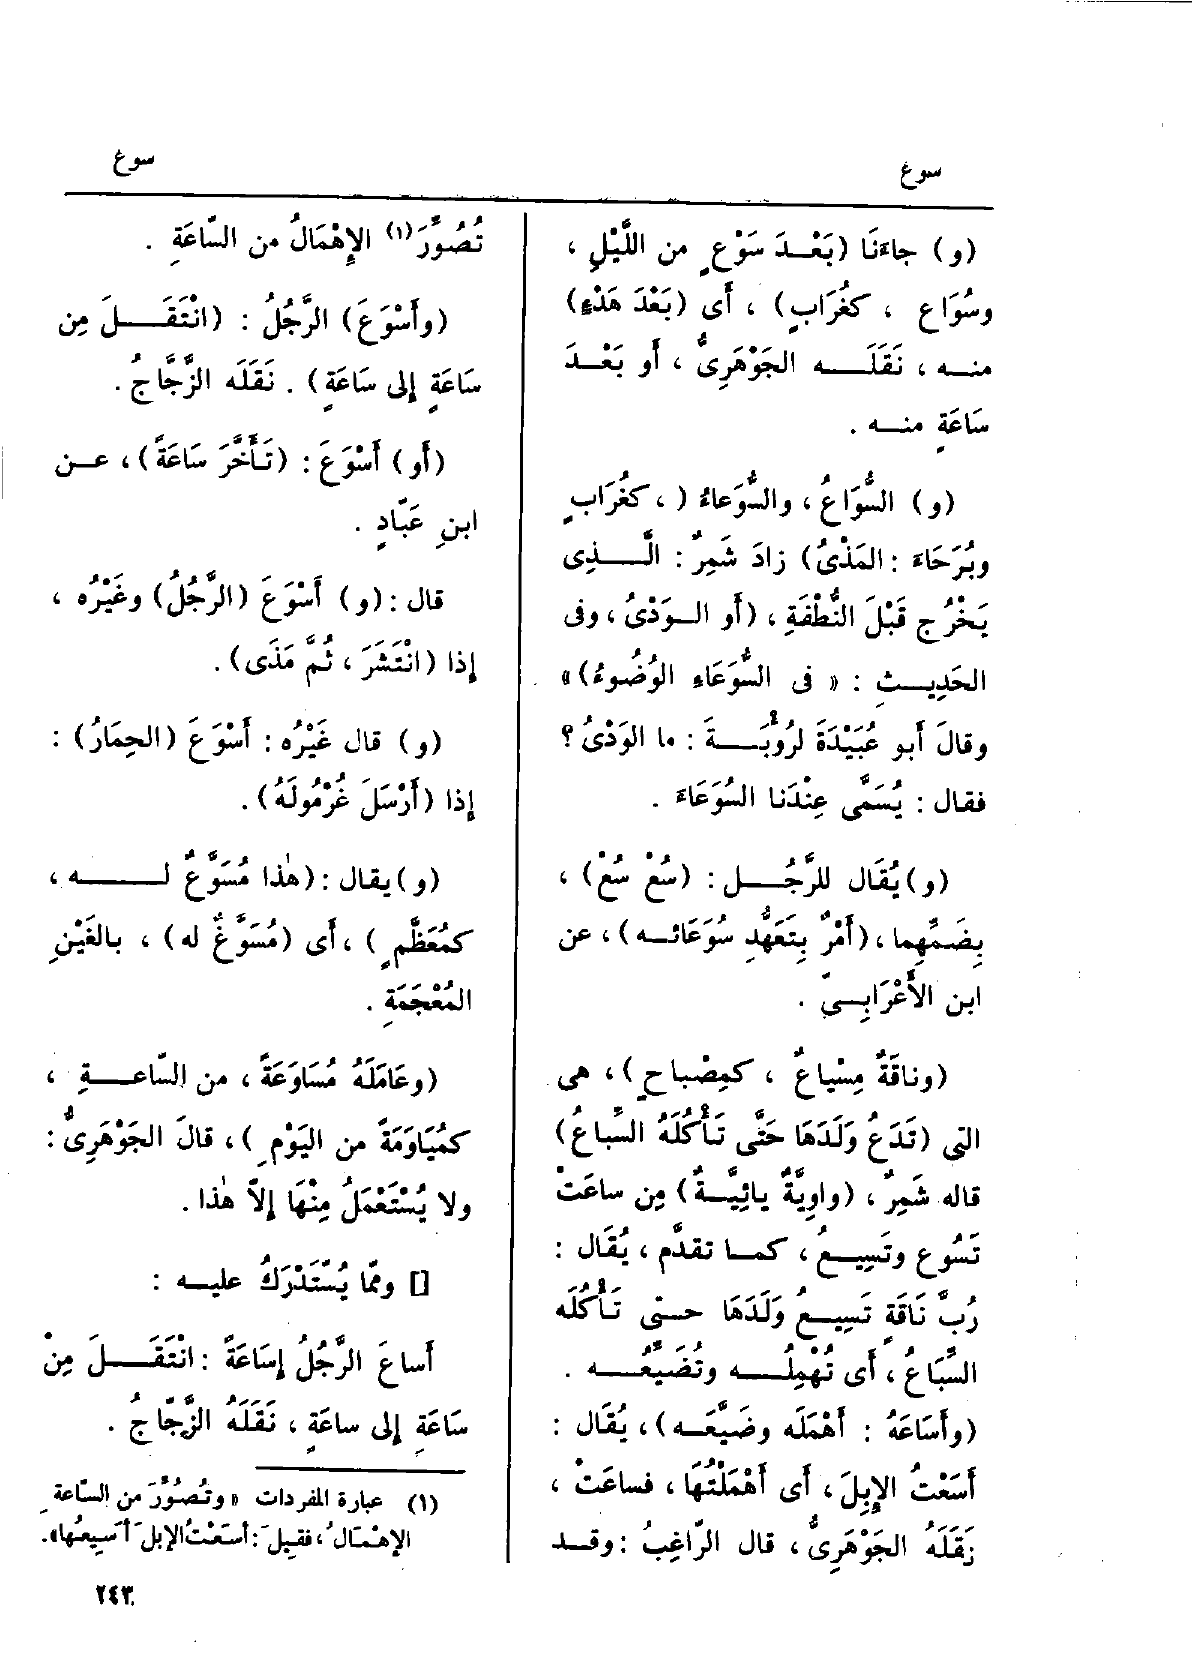 سوغ
سوغ
(و) جاءَنَا (بَعْدَ سَوْعٍ من اللَّيْلِ ،
وسُوَاعٍ ، كغُرَابٍ) ، أَى (بَعْدَ هَدْءٍ)
منه ، نَقَلَه الجَوْهَرِىُّ ، أَو بَعْدَ
سَاعَةٍ منه .
(و) السُّوَاعُ ، والسُّوَعاءُ ( ، كغُرَابٍ
وبُرَحَاءَ : المَذْىُ) زادَ شَمِرٌ : الَّذِى
يَخْرُج قَبْلَ النُّطْفَةِ ، (أَو الوَدْىُ ، وفى
الحَدِيثِ : « فى السُّوَعَاءِ الوُضُوءُ) »
وقالَ أَبو عُبَيْدَةَ لرُؤْبَةَ : ما الوَدْىُ ؟
فقال : يُسَمَّى عِنْدَنا السُّوَعَاءَ .
(و) يُقَال للرَّجُلِ : (سُعْ سُعْ) ،
بِضَمِّهِما ، (أَمْرٌ بِتَعَهُّدِ سُوَعَائه) ، عن
ابن الأَعْرَابِىّ .
(وناقَةٌ مِسْياعٌ ، كمِصْباحٍ) ، هى
التى (تَدَعُ وَلَدَهَا حَتَّى تَأْكُلَهُ السِّباعُ)
قاله شَمِرٌ ، (واوِيَّةٌ يائِيَّةٌ) مِن ساعَتْ
تَسُوع وتَسِيعُ ، كما تقدَّم ، يُقَال :
رُبَّ نَاقَةٍ تَسِيعُ وَلَدَهَا حتى تَأْكُلَه
السِّبَاعُ ، أَى تُهْمِلُه وتُضَيِّعُه .
(وأَسَاعَهُ : أَهْمَلَه وضَيَّعَه) ، يُقَال :
أَسَعْتُ الإِبِلَ ، أَى أَهْمَلْتُهَا ، فساعَتْ ،
نَقَلَهُ الجَوْهَرِىُّ ، قال الرّاغِبُ : وقد
تُصُوِّرَ(١) الإِهْمَالُ من السّاعَةِ .
(وأَسْوَعَ) الرَّجُلُ : (انْتَقَلَ مِن
سَاعَةٍ إلى سَاعَةٍ) . نَقَلَه الزَّجّاجُ .
(أَو) أَسْوَعَ : (تَأَخَّرَ سَاعَةً) ، عن
ابنِ عَبّادٍ .
قال : (و) أَسْوَعَ (الرَّجُلُ) وغَيْرُه ،
إذا (انْتَشَرَ ، ثُمَّ مَذَى) .
(و) قال غَيْرُه : أَسْوَعَ (الحِمَارُ) :
إذا (أَرْسَلَ غُرْمُولَهُ) .
(و) يقال : (هٰذا مُسَوَّعٌ له ،
كمُعَظَّمٍ) ، أَى (مُسَوَّغٌ له) ، بالغَيْنِ
المُعْجَمَةِ .
(وعَامَلَهُ مُسَاوَعَةً ، من السّاعةِ ،
كمُيَاوَمَةً من اليَوْمِ) ، قالَ الجَوْهَرِىُّ :
ولا يُسْتَعْمَلُ مِنْهَا إلاّ هٰذا .
[] وممّا يُسْتَدْرَكُ عليه :
أَساعَ الرَّجُلُ إسَاعَةً : انْتَقَلَ مِنْ
سَاعَةٍ إلى ساعَةٍ ، نَقَلَهُ الزَّجّاجُ .
(١) عبارة المفردات « وتُصُوِّرَ من السّاعةِ
الإهْمالُ ، فقِيلَ : أسَعْتُ الإبلَ أُسِيعُها » .
٢٤٣